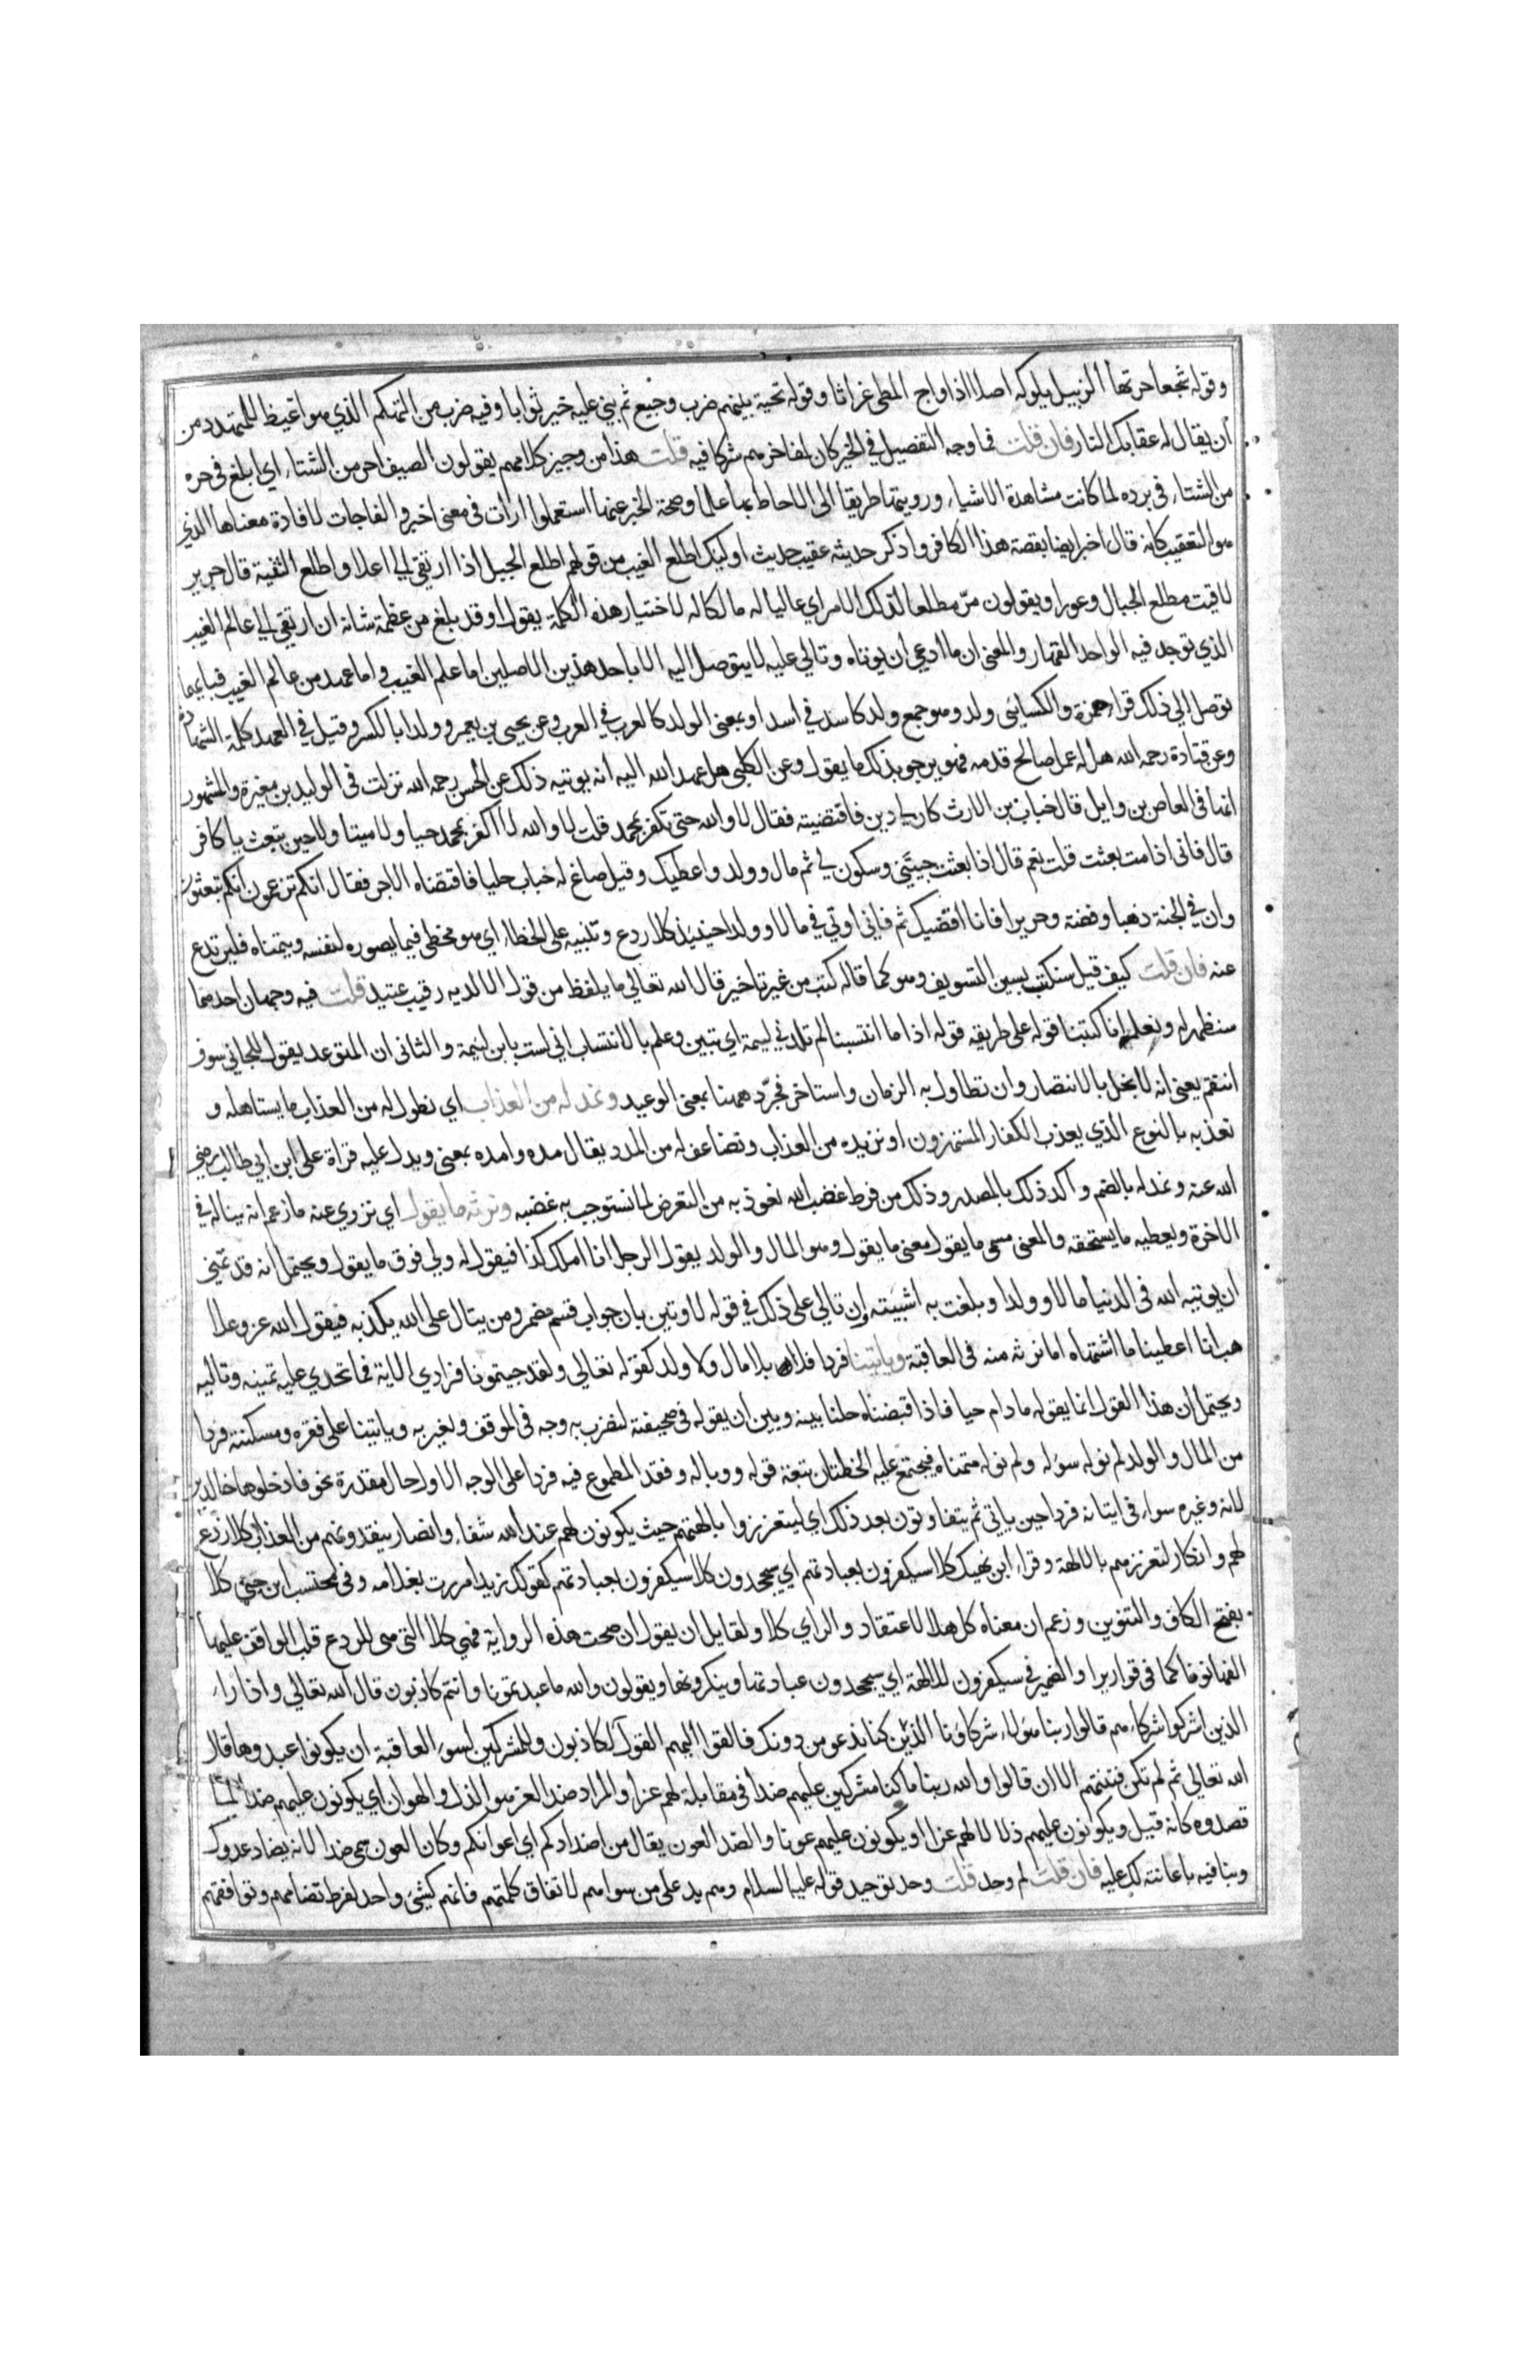 وقوله شجعا جرتها الزبيل يلوكه اصلا اذا واج المطى غراثا وقوله تحية بينهم ضرب وجيع ثم بني عليه خير ثوابا وفيه ضرب من التهكم الذي هوا غيظ للمتهدد من
أن يقال له عقابك النار فان قلت فما وجه التفصيل في الخير كان لمفاخرهم شركا فيه قلت هذا من وجيز كلامهم يقولون الصيف احر من الشتاء اي ابلغ في حره
من الشتاء في برده لما كانت مشاهدة الاشياء ورويتها طريقا الى الاحاط بها علما وصحة الخبر عنها استعملوا ارأت في معنى اخبر والفاجات لافادة معناها الذي
هو التعقيب كانه قال اخبر ايضا بقصة هذا الكافر واذكر حديثه عقيب حديث اوليك اطلع الغيب من قولهم اطلع الجبل اذا ارتقي الي اعلا واطلع الثنية قال جرير
لاقيت مطلع الجبال وعورا ويقولون مرّ مطلعا لذلك الامر اي عاليا له مالكا له لاختيار هذه الكلمة يقول اوقد بلغ من عظمة شانه ان ارتقي الي عالم الغيب
الذي توحد فيه الواحد القهار والمعنى ان ما ادعي ان يوتاه وتالي عليه لا يتوصل اليه الا باحد هذين الاصلين اما علم الغيب واما عهد من عالم الغيب فبايهما
توصل الي ذلك قراء حمزة والكسايئى ولد وهو جمع ولد كاسد في اسد او بمعنى الولد كالعرب في العرب وعن يحيى بن يعمر وولدا بالكسر وقيل في العهد كلمة الشهادة
وعن قتادة رحمه الله هل له عمل صالح قدمه فهو يرجو بذلك ما يقول وعن الكلبي هل عهد الله اليه انه يوتيه ذلك عن الحسن رحمه الله نزلت في الوليد بن مغيرة والمشهور
انها في العاص بن وايل قال خباب بن الارث كان لي دين فاقتضيته فقال لا والله حتى تكفر بمحمد قلت لا والله لا اكفر بمحمد حيا ولا ميتا ولا حين تبعث يا كافر
قال فانى اذا مت بعثت قلت نعم قال اذا بعثت جيتني وسكون لي ثم مال وولد واعطيك وقيل صاغ له خباب حليا فاقتضاه الاجر فقال انكم تزعون انكم تبعثون
وان في الجنة ذهبا وفضة وحريرا فانا اقضيك ثم فاني اوتي في مالا وولدا حينيذ كلا ردع وتنبيه على الخطاء اي هو مخطى فيما يصوره لنفسه ويتمناه فليرتدع
عنه فان قلت كيف قيل سنكتب بسين التسويف وهو كما قاله كتب من غير تاخير قال الله تعالي ما يلفظ من قول الا لديه رقيب عتيد قلت فيه وجهان احدهما
سنظهر له ونعلمه انا كتبنا قوله على طريقه قوله اذا ما انتسبنا لم تلدني ليمة اي تبين وعلم بالانتساب اني لست بابن لئيمة والثانى ان المتوعد يقول للجاني سوف
انتقم يعنى انه لا يخل بالانتصار وان تطاول به الزمان واستاخر فجرّد ههنا بمعنى الوعيد ونمد له من العذاب اي نطول له من العذاب ما يستاهله و
نعذبه بالنوع الذي يعذب الكفار المستهزون او نزيده من العذاب ونضاعف له من المدد يقال مده وامده بمعنى ويدل عليه قراة على ابن ابي طالب رضي
الله عنه ونمد له بالضم واكد ذلك بالمصدر وذلك من فرط غضب الله نعوذ به من التعرض لما نستوجب به غضبه ونرثه ما يقول اي نزوي عنه ما زعم انه يناله في
الاخرة ويعطيه ما يستحقه والمعنى مسمى ما يقول معنى ما يقول وهو المال والولد يقول الرجل انا املك كذا فيقول له ولي فوق ما يقول ويحتمل انه قد تمنى
ان يوتيه الله في الدنيا مالا وولدا وبلغت به اشبيته ان تالي على ذلك في قوله لاوتين بان جواب قسم مضمر ومن يتال على الله يكذبه فيقول الله عز وعلا
هب انا اعطينا ما اشتهاه اما نرثه منه في العاقبة وياتينا فردا بلا مال ولا ولد كقوله تعالي ولقد جيتمونا فرادي الاية فما تجدي عليه تمنيه وتاليه
ويحتمل ان هذا القول انما يقوله ما دام حيا فاذا قبضناه حلنا بينه وبين ان يقوله في صحيفتة لنضرب به وجه في الموقف ونعير به وياتينا على فقره ومسكنته فردا
من المال والولد لم نوله سوله ولم نوله متمناه فيجتمع عليه الخطئان تبعة قوله ووباله وفقد المطموع فيه فردا على الوجه الاول حال مقدرة نحو فادخلوها خالدين
لانه وغيره سواء في ايتانه فردا حين ياتي ثم يتفاوتون بعد ذلك اي ليتعززوا بالهتهم حيث يكونون لهم عند الله شفاء وانصار ينقذونهم من العذاب كلا ردع
لهم وانكار لتعززهم بالالهة وقراء ابن نهيك كلا سيكفرون بعبادتهم اي سيجحدون كلا سيكفرون بعبادتهم كقولك زيدا مررت بغلامه وفي محتسب ابن جني كلا
بفتح الكاف والتنوين وزعم ان معناه كل هلا الاعتقاد والراي كلا ولقايل ان يقول ان صحت هذه الرواية فهي كلا التي هي للردع قلب الواقف عليها
الفها نونا كما في قواريرا والضمير في سيكفرون للالهة اي سيجحدون عبادتها وينكرونها ويقولون والله ما عبدتمونا وانتم كاذبون قال الله تعالي واذا راء
الذين اشركوا شركاءهم قالوا ربنا هولاء شركاونا الذين كنا ندعو من دونك فالقوا اليهم القول لكاذبون والمشركين لسوء العاقبة ان يكونوا عبدوها قال
الله تعالي ثم لم تكن فتنتهم الا ان قالوا والله ربنا ما كنا مشركين عليهم ضدا في مقابلة لهم عزا والمراد ضد العز هو الذل والهوان اي يكونون عليهم ضدا لما
قصدوه كانه قيل ويكونون عليهم ذلا لا لهم عزا او يكونون عليهم عونا والضد العون يقال من اضدادكم اي اعوانكم وكان العون سمي ضدا لانه يضاد عدوك
وينافيه باعانته لك عليه فان قلت لم وحد قلت وحد توحيد قوله عليه السلام وهم يد على من سواهم لاتفاق كلمتهم فانهم كشئ واحد لفرط تضامهم وتوافقهم